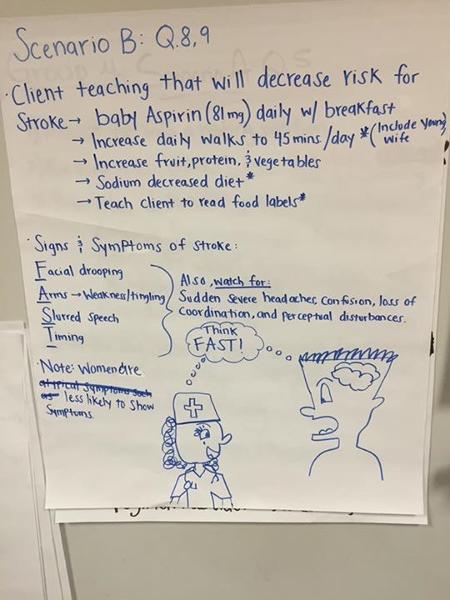 Scenario B: Q.8,9
· Client teaching that will decrease risk for
Stroke → baby Aspirin (81mg) daily w/ breakfast
→ Increase daily walks to 45 mins/day *(Include young
wife
→ Increase fruit, protein, & vegetables
→ Sodium decreased diet*
→ Teach client to read food labels*
· Signs & Symptoms of stroke:
Facial drooping
Arms → Weakness/tingling
Slurred speech
Timing
Also, watch for:
Sudden severe headaches, confusion, loss of
coordination, and perceptual disturbances.
Think
FAST!
· Note: Women are
atypical symptoms such
as less likely to show
symptoms.